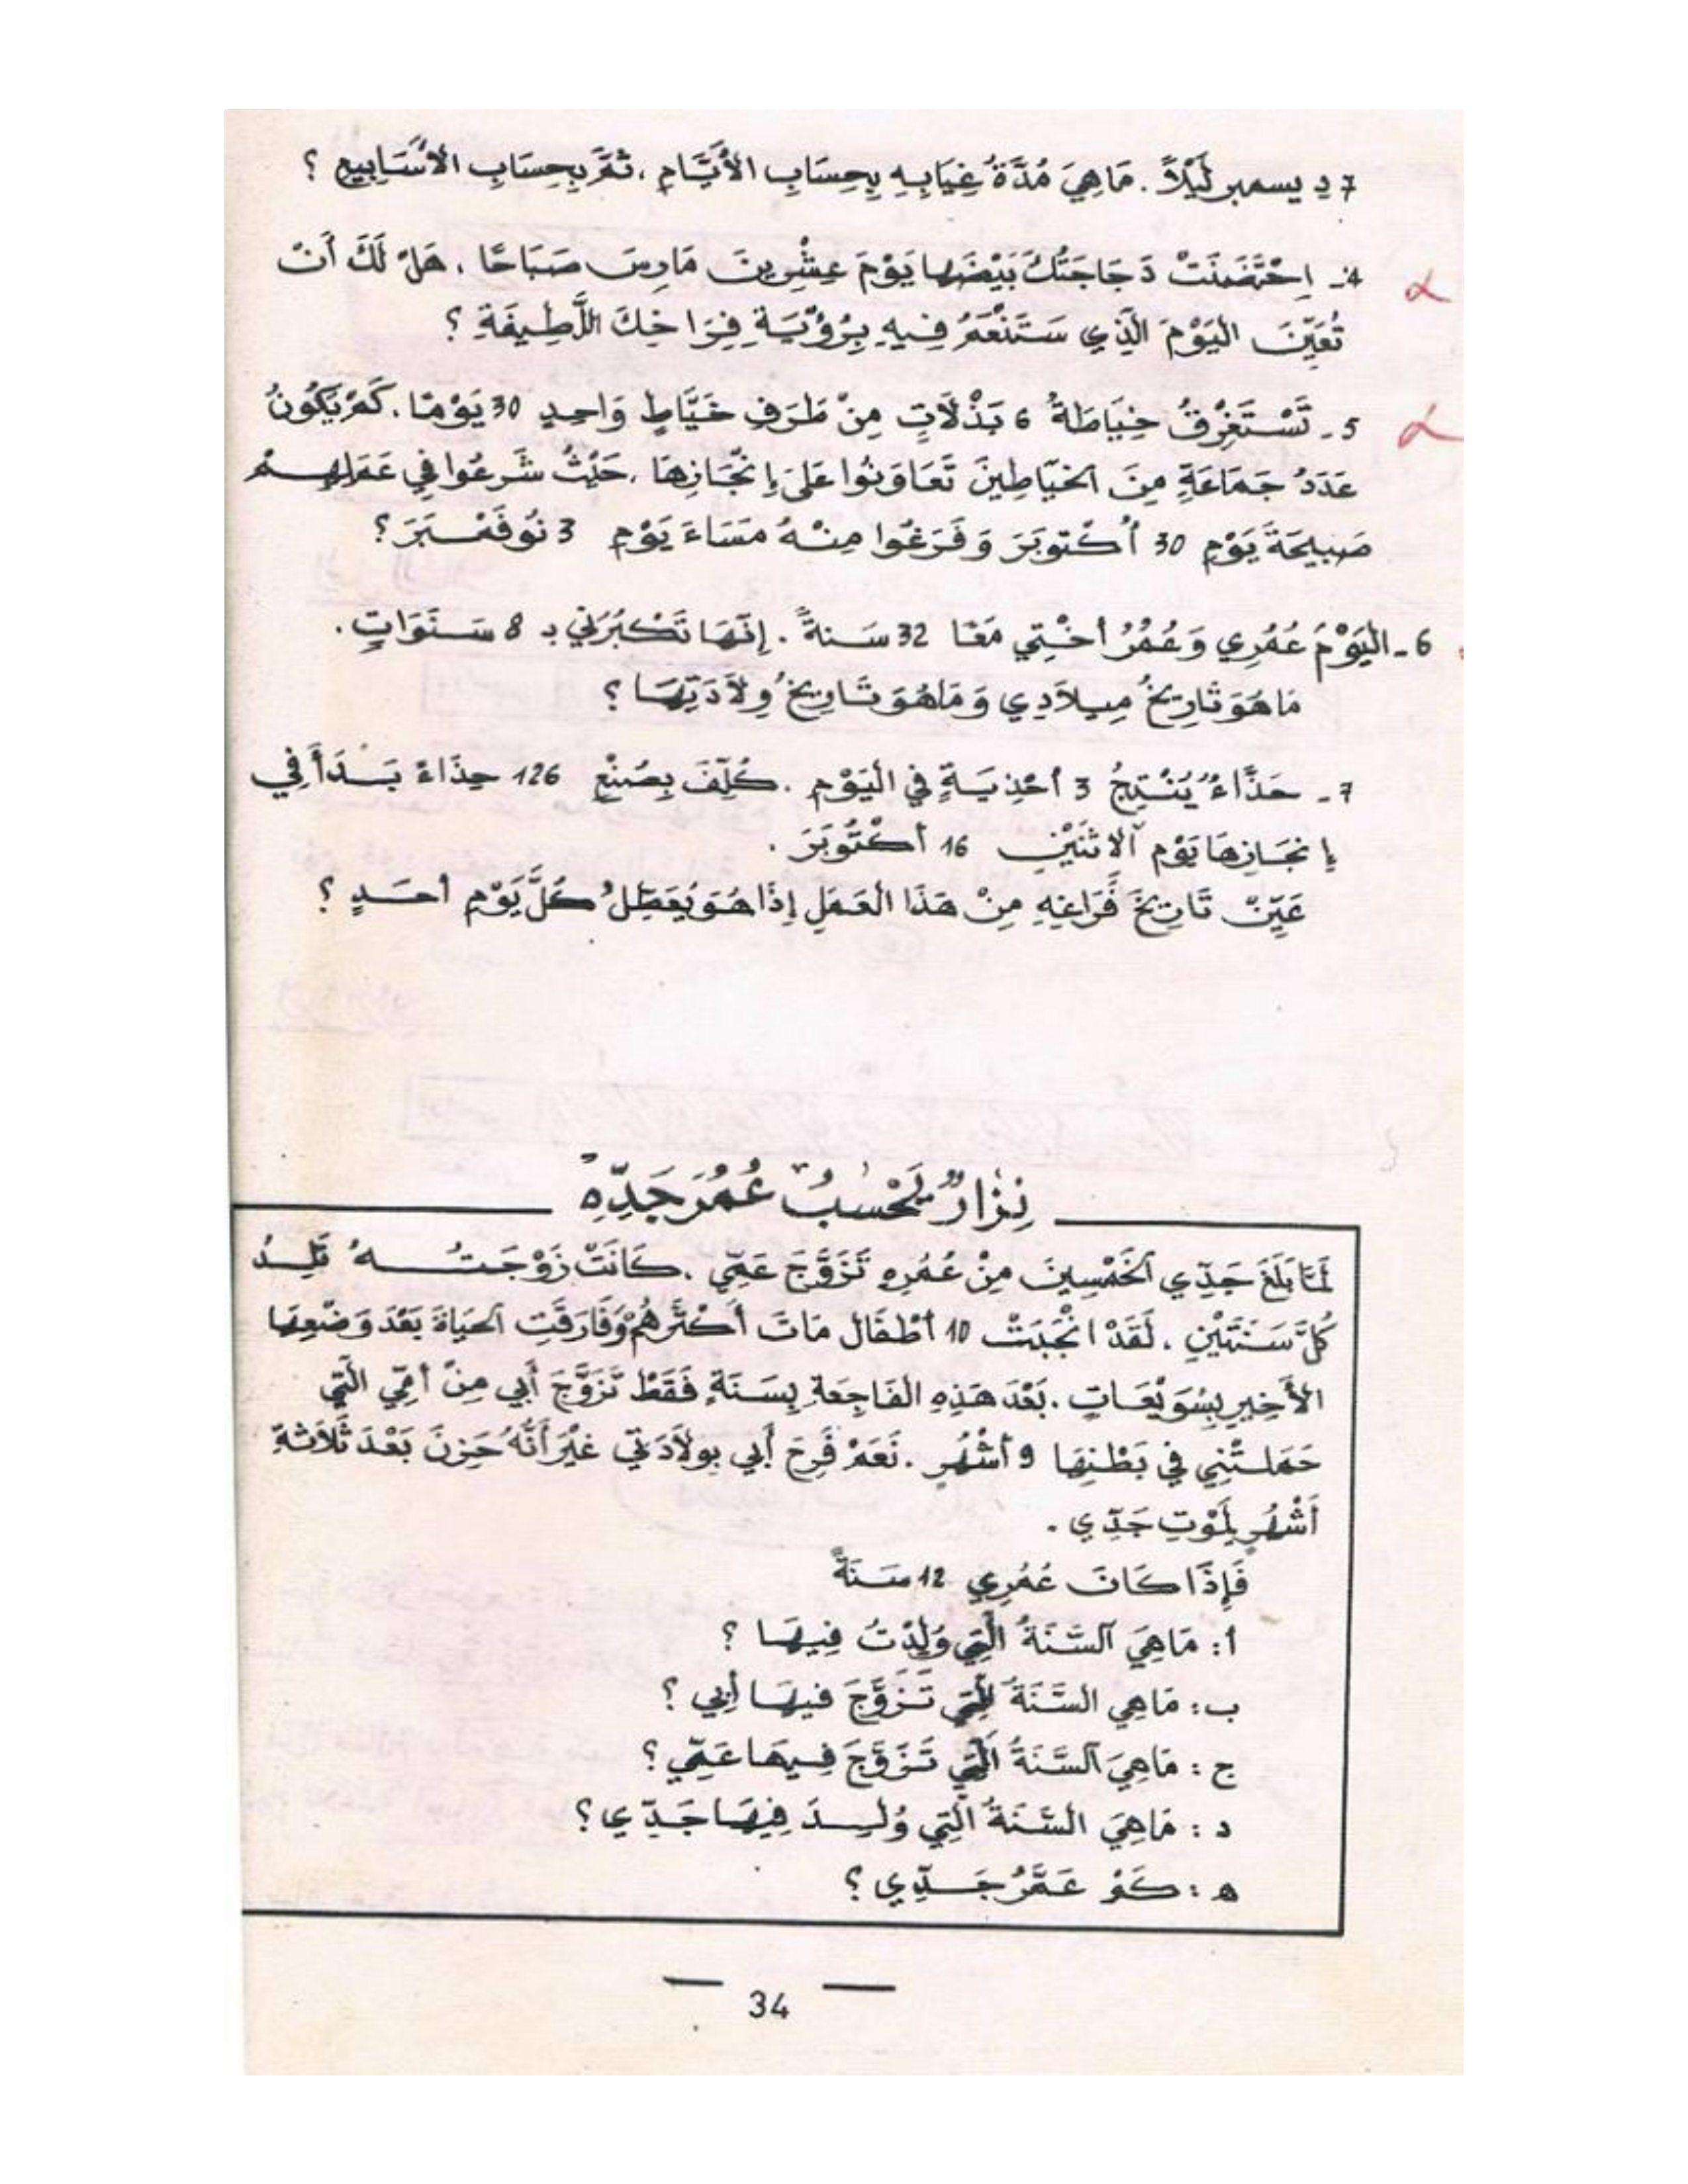 7 ديسمبر لَيْلاً. مَاهِيَ مُدَّةُ غِيَابِهِ بِحِسَابِ الأَيَّامِ، ثُمَّ بِحِسَابِ الأَسَابِيعِ ؟
4- اِحْتَضَنَتْ دَجَاجَتُكَ بَيْضَهَا يَوْمَ عِشْرِينَ مَارِسَ صَبَاحًا. هَلْ لَكَ أَنْ
تُعَيِّنَ اليَوْمَ الَّذِي سَتَنْعَمُ فِيهِ بِرُؤْيَةِ فِرَاخِكَ اللَّطِيفَةِ ؟
5- تَسْتَغْرِقُ خِيَاطَةُ 6 بَذْلَاتٍ مِنْ طَرَفِ خَيَّاطٍ وَاحِدٍ 30 يَوْمًا. كَمْ يَكُونُ
عَدَدُ جَمَاعَةٍ مِنَ الخَيَّاطِينَ تَعَاوَنُوا عَلَى إِنْجَازِهَا، حَيْثُ شَرَعُوا فِي عَمَلِهِمْ
صَبِيحَةَ يَوْمِ 30 أُكْتوبَرَ وَفَرَغُوا مِنْهُ مَسَاءَ يَوْمِ 3 نُوفَمْبَرَ ؟
6- اليَوْمَ عُمُرِي وَعُمُرُ أُخْتِي مَعًا 32 سَنةً. إِنَّهَا تَكْبُرُنِي بـ 8 سَنَوَاتٍ.
مَاهُوَ تَارِيخُ مِيلَادِي وَمَاهُوَ تَارِيخُ وِلَادَتِهَا ؟
7- حَذَّاءٌ يُنْتِجُ 3 أحْذِيَةٍ فِي اليَوْمِ. كُلِّفَ بِصُنْعِ 126 حِذَاءً بَدَأَ فِي
إنجَازِهَا يَوْم الاثْنَيْنِ 16 أُكْتُوبَرَ.
عَيِّنْ تَارِيخَ فَرَاغِهِ مِنْ هَذَا العَمَلِ إِذَا هُوَ يُعَطِّلُ كُلَّ يَوْمِ أحَدٍ ؟
نِزَارٌ يَحْسبُ عُمُرَ جَدِّهِ
لَمَّا بَلَغَ جَدِّي الخَمْسِينَ مِنْ عُمُرِهِ تَزَوَّجَ عَمِّي. كَانَتْ زَوْجَتُهُ تَلِدُ
كُلَّ سَنَتَيْنِ. لَقَدْ انْجَبَتْ 10 أطْفَال مَاتَ أَكْثَرُهُمْ وَفَارَقَتِ الحَيَاةَ بَعْدَ وَضْعِهَا
الأَخِيرِ بِسُوَيْعَاتٍ. بَعْدَ هَذِهِ الفَاجِعَةِ بِسَنَةٍ فَقَطْ تَزَوَّجَ أَبِي مِنْ أمِّي الَّتِي
حَمَلَتْنِي فِي بَطْنِهَا 9 أشْهُرٍ. نَعَمْ فَرِحَ أَبِي بِولَادَتِي غَيْرَ أَنَّهُ حَزِنَ بَعْدَ ثَلَاثَةِ
أَشْهُرٍ لِمَوْتِ جَدِّي.
فَإِذَا كَانَ عُمُرِي 12 سَنَةً
أ: مَاهِيَ السَّنَةُ الَّتِي وُلِدْتُ فِيهَا ؟
ب: مَاهِي السَّنَةُ الَّتِي تَزَوَّجَ فيهَا أَبِي ؟
ج: مَاهِيَ السَّنَةُ الَّتِي تَزَوَّجَ فِيهَا عَمِّي ؟
د: مَاهِيَ السَّنَةُ الَّتِي وُلِدَ فِيهَا جَدِّي ؟
ه: كَمْ عَمَّرَ جَدِّي ؟
34